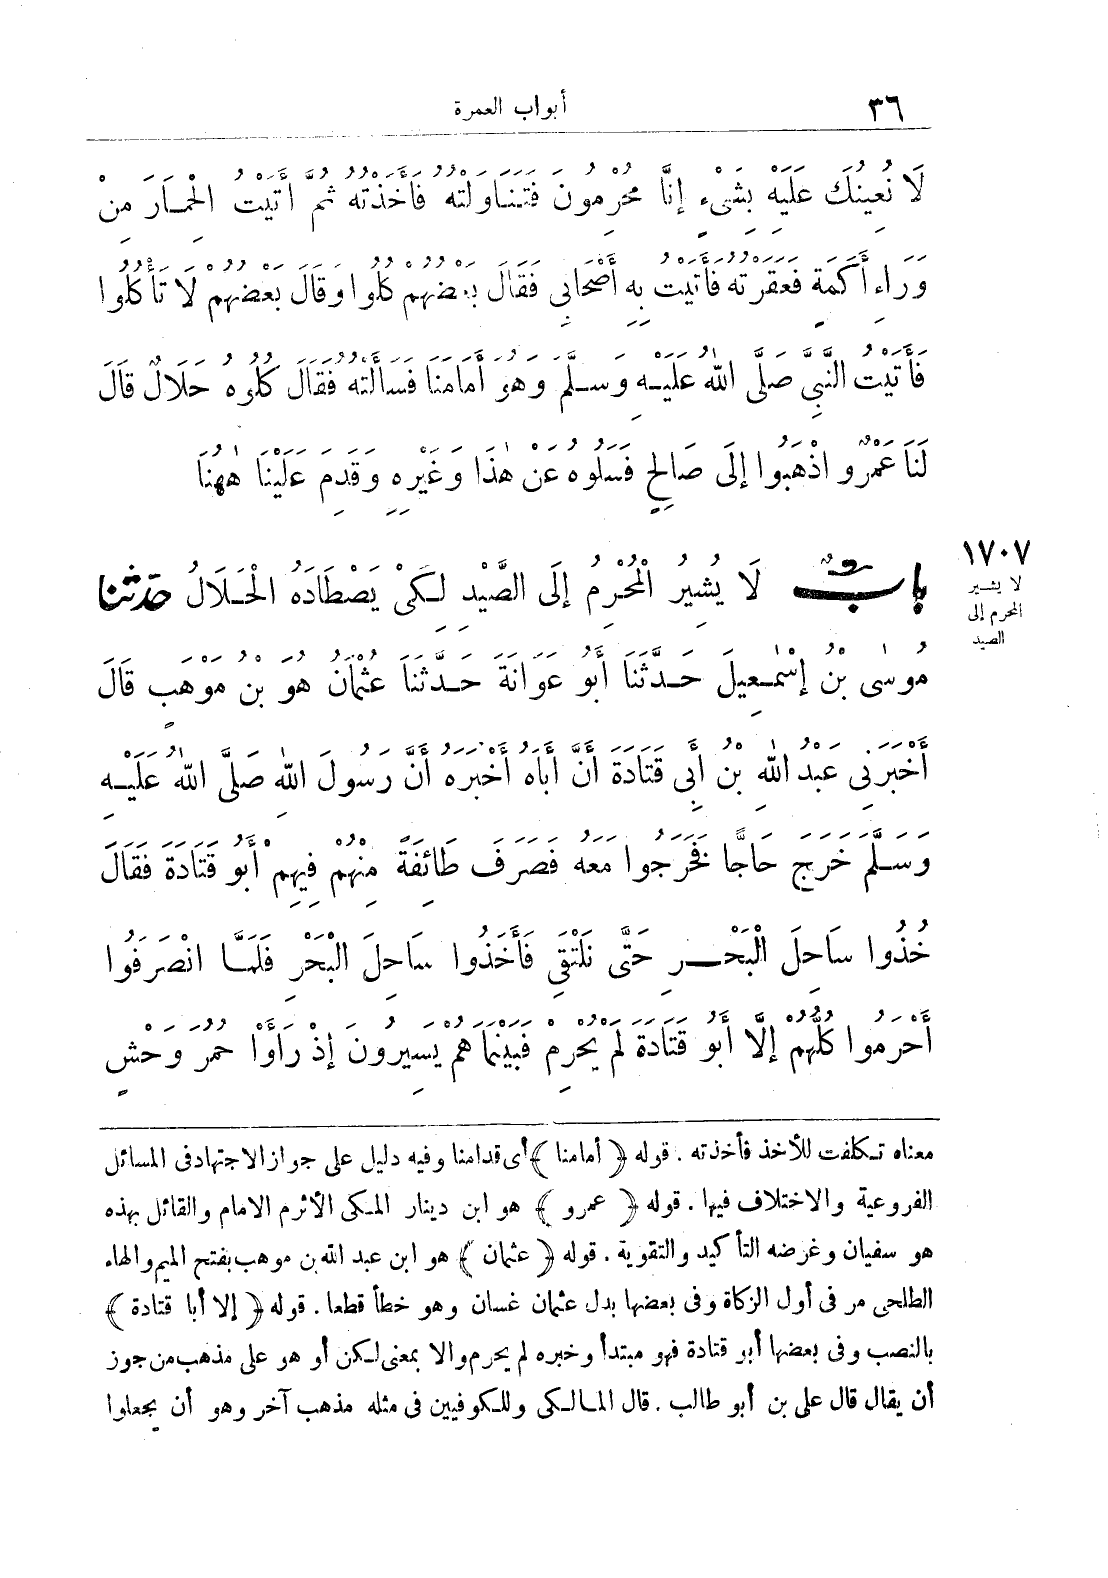 ٣٦
أبواب العمرة
لَا نُعِينُكَ عَلَيْهِ بِشَىْءٍ إِنَّا مُحْرِمُونَ فَتَنَاوَلْتُهُ فَأَخَذْتُهُ ثُمَّ أَتَيْتُ الْحِمَارَ مِنْ
وَرَاءِ أَكَمَةٍ فَعَقَرْتُهُ فَأَتَيْتُ بِهِ أَصْحَابِى فَقَالَ بَعْضُهُمْ كُلُوا وَقَالَ بَعْضُهُمْ لَا تَأْكُلُوا
فَأَتَيْتُ النَّبِىَّ صَلَّى اللهُ عَلَيْهِ وَسَلَّمَ وَهُوَ أَمَامَنَا فَسَأَلْتُهُ فَقَالَ كُلُوهُ حَلَالٌ قَالَ
لَنَا عَمْرٌو اذْهَبُوا إِلَى صَالِحٍ فَسَلُوهُ عَنْ هٰذَا وَغَيْرِهِ وَقَدِمَ عَلَيْنَا هٰهُنَا
١٧٠٧
لا يشير
المحرم إلى
الصيد
بابٌ لَا يُشِيرُ الْمُحْرِمُ إِلَى الصَّيْدِ لِكَىْ يَصْطَادَهُ الْحَلَالُ حَدَّثَنَا
مُوسٰى بْنُ إِسْمٰعِيلَ حَدَّثَنَا أَبُو عَوَانَةَ حَدَّثَنَا عُثْمَانُ هُوَ بْنُ مَوْهَبٍ قَالَ
أَخْبَرَنِى عَبْدُ اللهِ بْنُ أَبِى قَتَادَةَ أَنَّ أَبَاهُ أَخْبَرَهُ أَنَّ رَسُولَ اللهِ صَلَّى اللهُ عَلَيْهِ
وَسَلَّمَ خَرَجَ حَاجًّا فَخَرَجُوا مَعَهُ فَصَرَفَ طَائِفَةً مِنْهُمْ فِيهِمْ أَبُو قَتَادَةَ فَقَالَ
خُذُوا سَاحِلَ الْبَحْرِ حَتَّى نَلْتَقِىَ فَأَخَذُوا سَاحِلَ الْبَحْرِ فَلَمَّا انْصَرَفُوا
أَحْرَمُوا كُلُّهُمْ إِلَّا أَبُو قَتَادَةَ لَمْ يُحْرِمْ فَبَيْنَمَا هُمْ يَسِيرُونَ إِذْ رَأَوْا حُمُرَ وَحْشٍ
معناه تكلفت للأخذ فأخذته . قوله ﴿ أمامنا ﴾ أى قدامنا وفيه دليل على جواز الاجتهاد فى المسائل
الفروعية والاختلاف فيها . قوله ﴿ عمرو ﴾ هو ابن دينار المكى الأثرم الامام والقائل بهذه
هو سفيان وغرضه التأكيد والتقوية . قوله ﴿ عثمان ﴾ هو ابن عبد الله بن موهب بفتح الميم والهاء
الطلحى مر فى أول الزكاة وفى بعضها بدل عثمان غسان وهو خطأ قطعا . قوله ﴿ إلا أبا قتادة ﴾
بالنصب وفى بعضها أبو قتادة فهو مبتدأ وخبره لم يحرم والا بمعنى لكن أو هو على مذهب من جوز
أن يقال قال على بن أبو طالب . قال المالكى وللكوفيين فى مثله مذهب آخر وهو أن يجعلوا